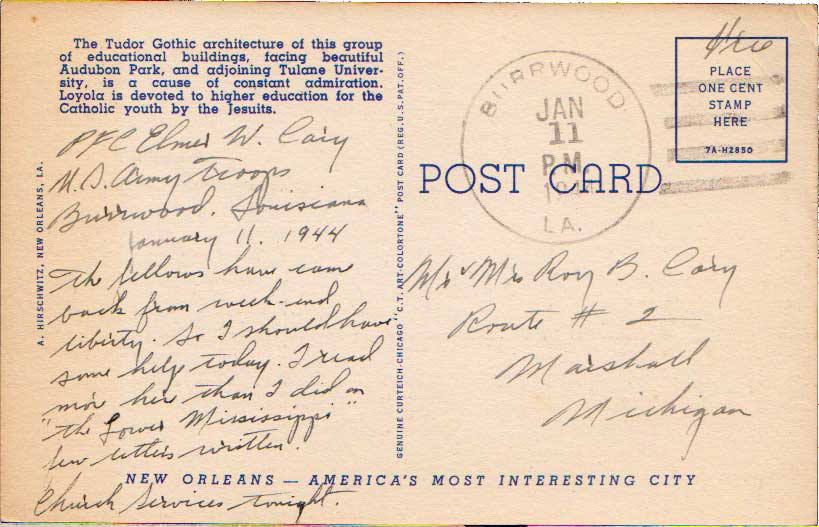 The Tudor Gothic architecture of this group
of educational buildings, facing beautiful
Audubon Park, and adjoining Tulane Univer-
sity, is a cause of constant admiration.
Loyola is devoted to higher education for the
Catholic youth by the Jesuits.
PFC Elmer W. Cary
U.S. Army Troops
Burrwood, Louisiana
January 11, 1944
The fellows have come
back from week-end
liberty. So I should have
some help today. I read
more here than I did on
"the Lower Mississippi"
few letters written.
Church Services tonight.
A. HIRSCHWITZ, NEW ORLEANS, LA.
GENUINE CURTEICH-CHICAGO "C.T. ART-COLORTONE" POST CARD (REG. U.S. PAT. OFF.)
POST CARD
BURRWOOD
JAN
11
P M
LA.
Free
PLACE
ONE CENT
STAMP
HERE
7A-H2850
Mr & Mrs Roy B. Cary
Route # 2
Marshall
Michigan
NEW ORLEANS — AMERICA'S MOST INTERESTING CITY